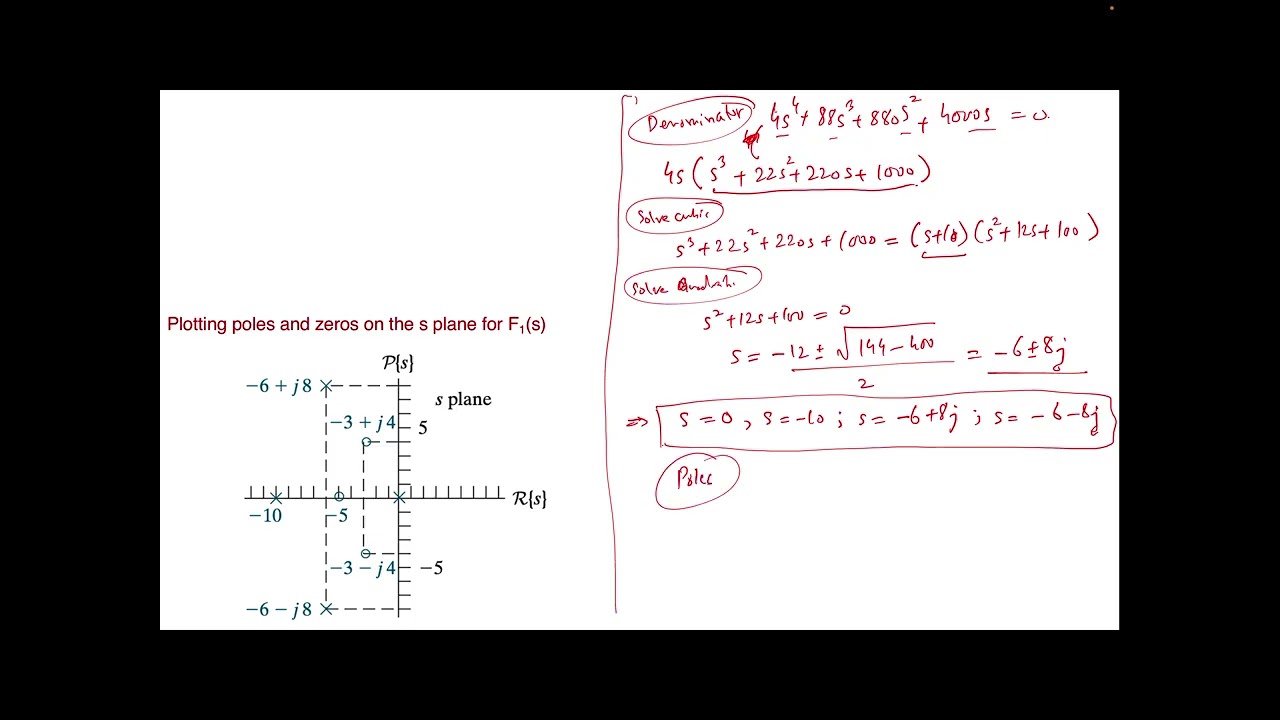 Plotting poles and zeros on the s plane for F₁(s)
𝒫{s}
−6 + j8
s plane
−3 + j4
5
ℛ{s}
−10
−5
−3 − j4
−5
−6 − j8
Denominator
4s⁴ + 88s³ + 880s² + 4000s = 0
4s (s³ + 22s² + 220s + 1000)
Solve cubic
s³ + 22s² + 220s + 1000 = (s+10) (s² + 12s + 100)
Solve
s² + 12s + 100 = 0
s = −12 ± √144 − 400 / 2 = −6 ± 8j
⇒ s = 0 , s = −10 ; s = −6+8j ; s = −6−8j
Poles